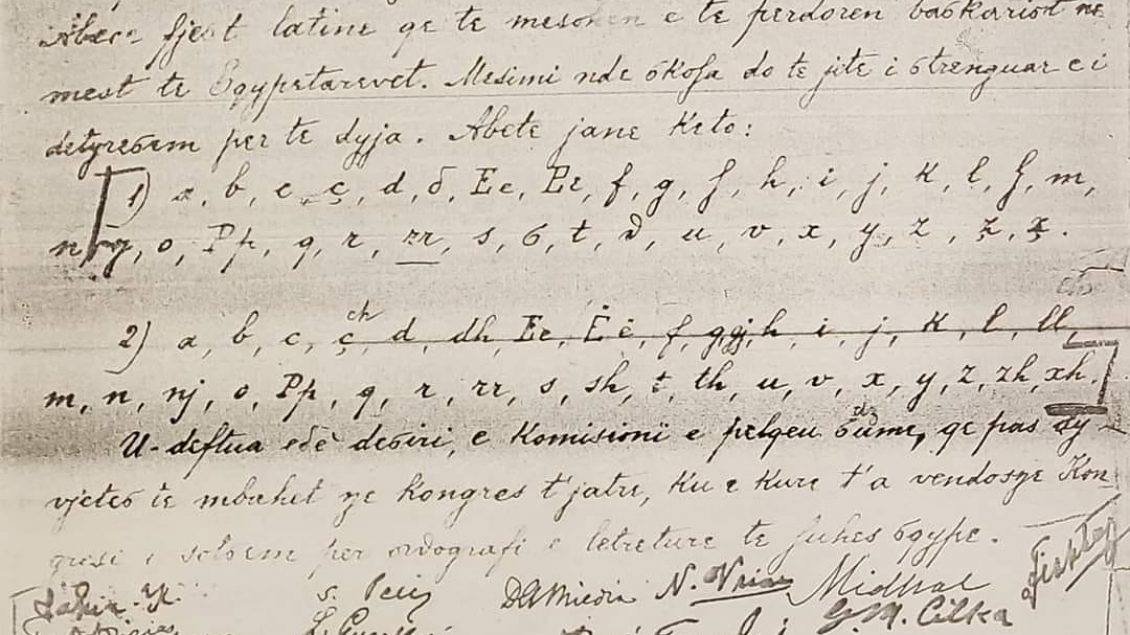 Abece fjeбt latine qe te mesohen e te perdoren baбkariбt ne
mest te Бqypetarevet. Mesimi nde бkoƚa do te jete i бtrenguar e i
detyreбem per te dyja. Abete jane keto:
1) a, b, c, ç, d, δ, Ee, Eε, f, g, ɧ, h, i, j, k, l, ƚ, m,
n, ŋ, o, Pp, q, r, rr, s, б, t, ϑ, u, v, x, y, z, ȥ, x̧.
2) a, b, c, ç ch, d, dh, Ee, Ëë, f, g, gj, h, i, j, k, l, ll,
m, n, nj, o, Pp, q, r, rr, s, sh, t, th, u, v, x, y, z, zh, xh.
U-deftua eδe deбiri, e Komisioni e pelqeu бume, qe pas dy
vjeteб te mbahet nje Kongres t'jatre, ku e kure t'a vendosnje Kon
gresi i sotбem per orϑografi e letreture te ɧuhes бqype.
N. Naçi Midhat Fishta
G. M. Cilka